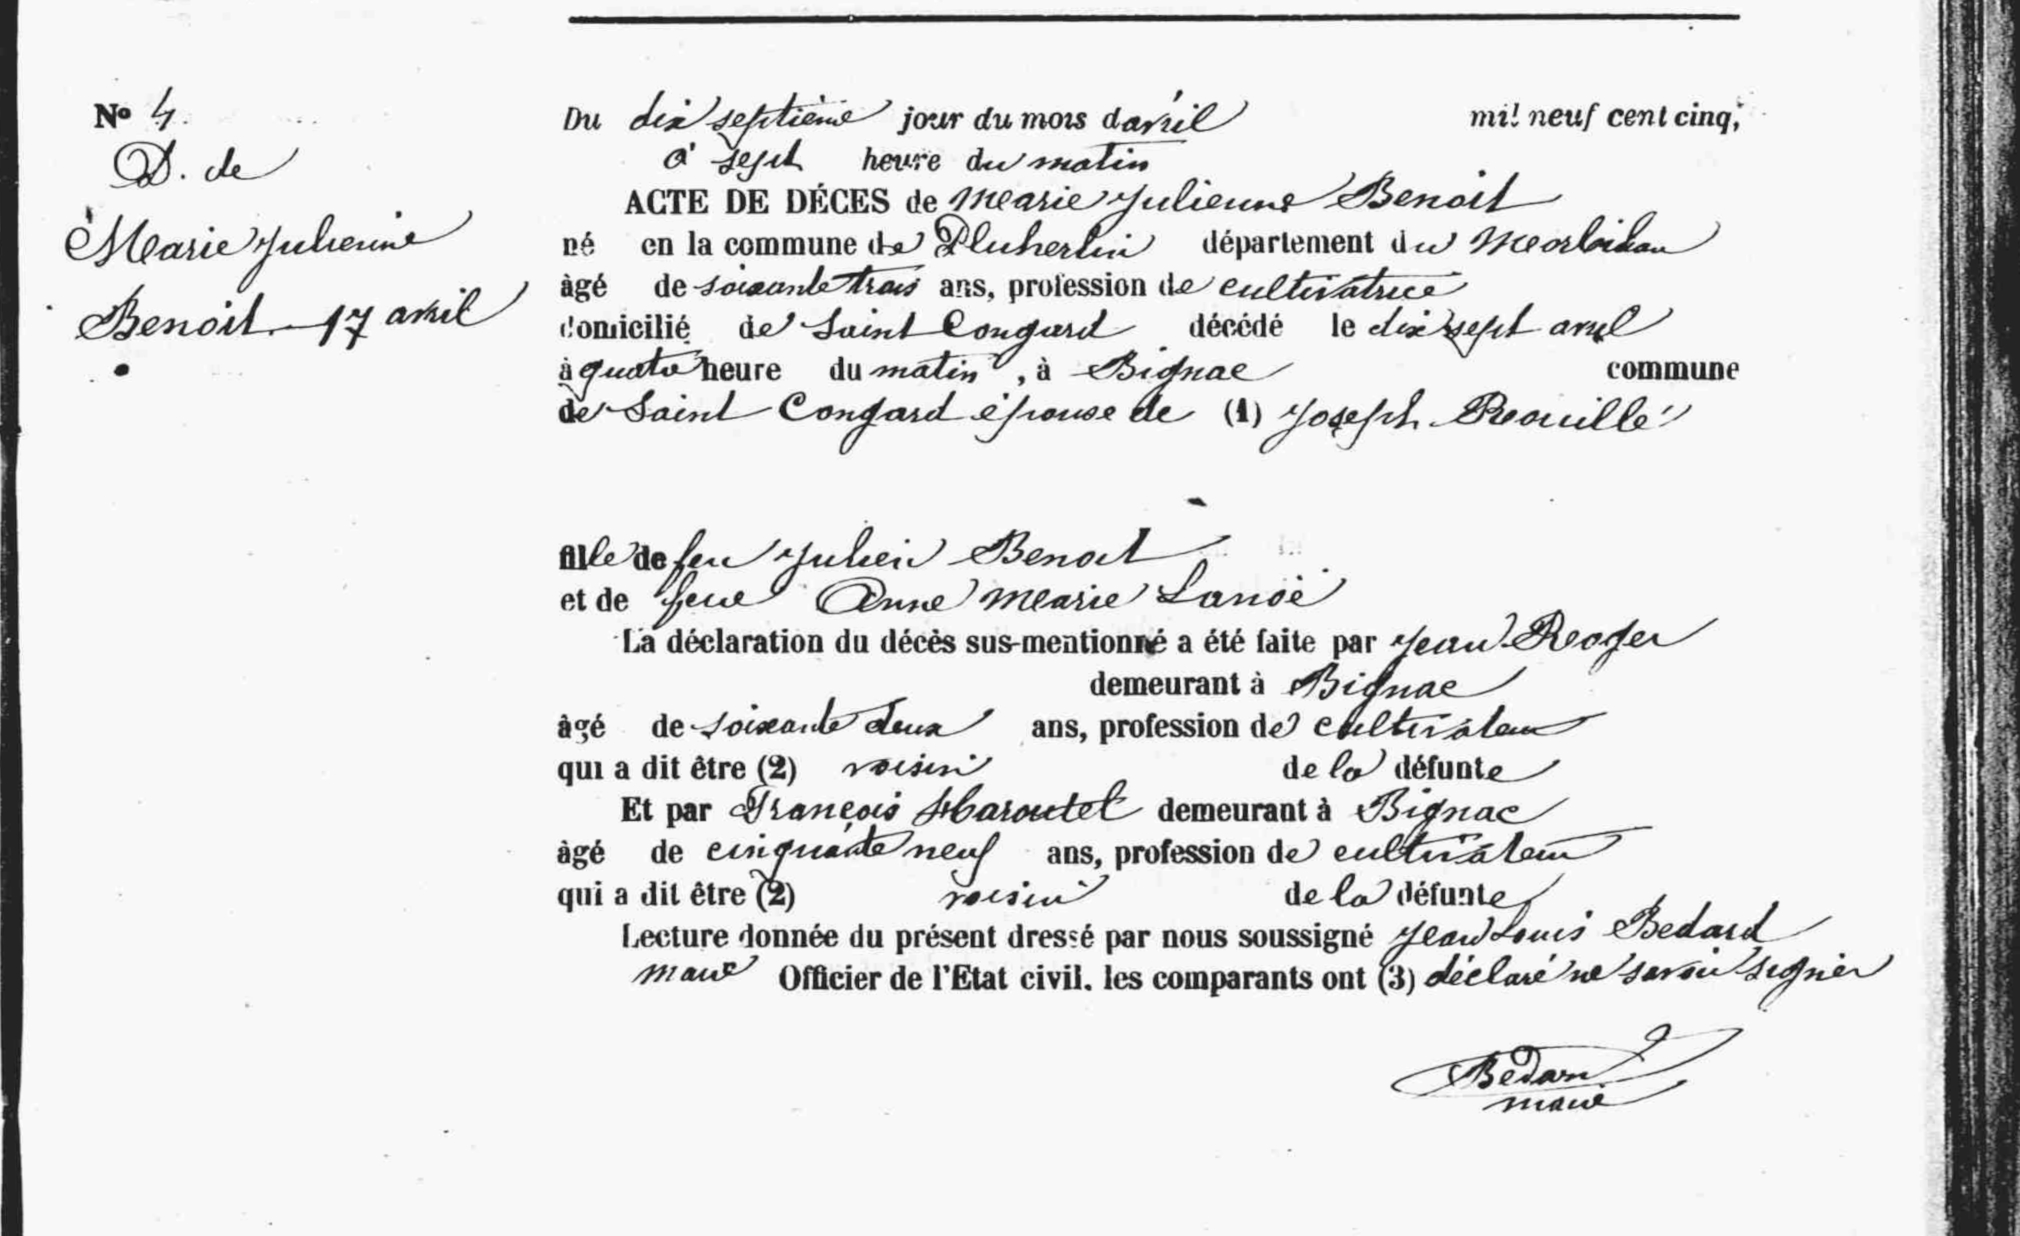 No 4.
D. de
Marie Julienne
Benoit. 17 avril
Du dix septième jour du mois d'avril mil neuf cent cinq,
à sept heure du matin
ACTE DE DÉCES de Marie Julienne Benoit
né en la commune de Pluherlin département du Morbihan
âgé de soixante trois ans, profession de cultivatrice
domicilié de Saint Congard décédé le dix sept avril
à quatre heure du matin, à Bignac commune
de Saint Congard épouse de (1) Joseph Rouillé
fille de feu Julien Benoit
et de feue Anne Marie Lanoë
La déclaration du décès sus-mentionné a été faite par Jean Roger
demeurant à Bignac
âgé de soixante deux ans, profession de cultivateur
qui a dit être (2) voisin de la défunte
Et par François demeurant à Bignac
âgé de cinquante neuf ans, profession de cultivateur
qui a dit être (2) voisin de la défunte
Lecture donnée du présent dressé par nous soussigné Jean Louis Bedard
maire Officier de l'Etat civil. les comparants ont (3) déclaré ne savoir signer
Bedard
maire